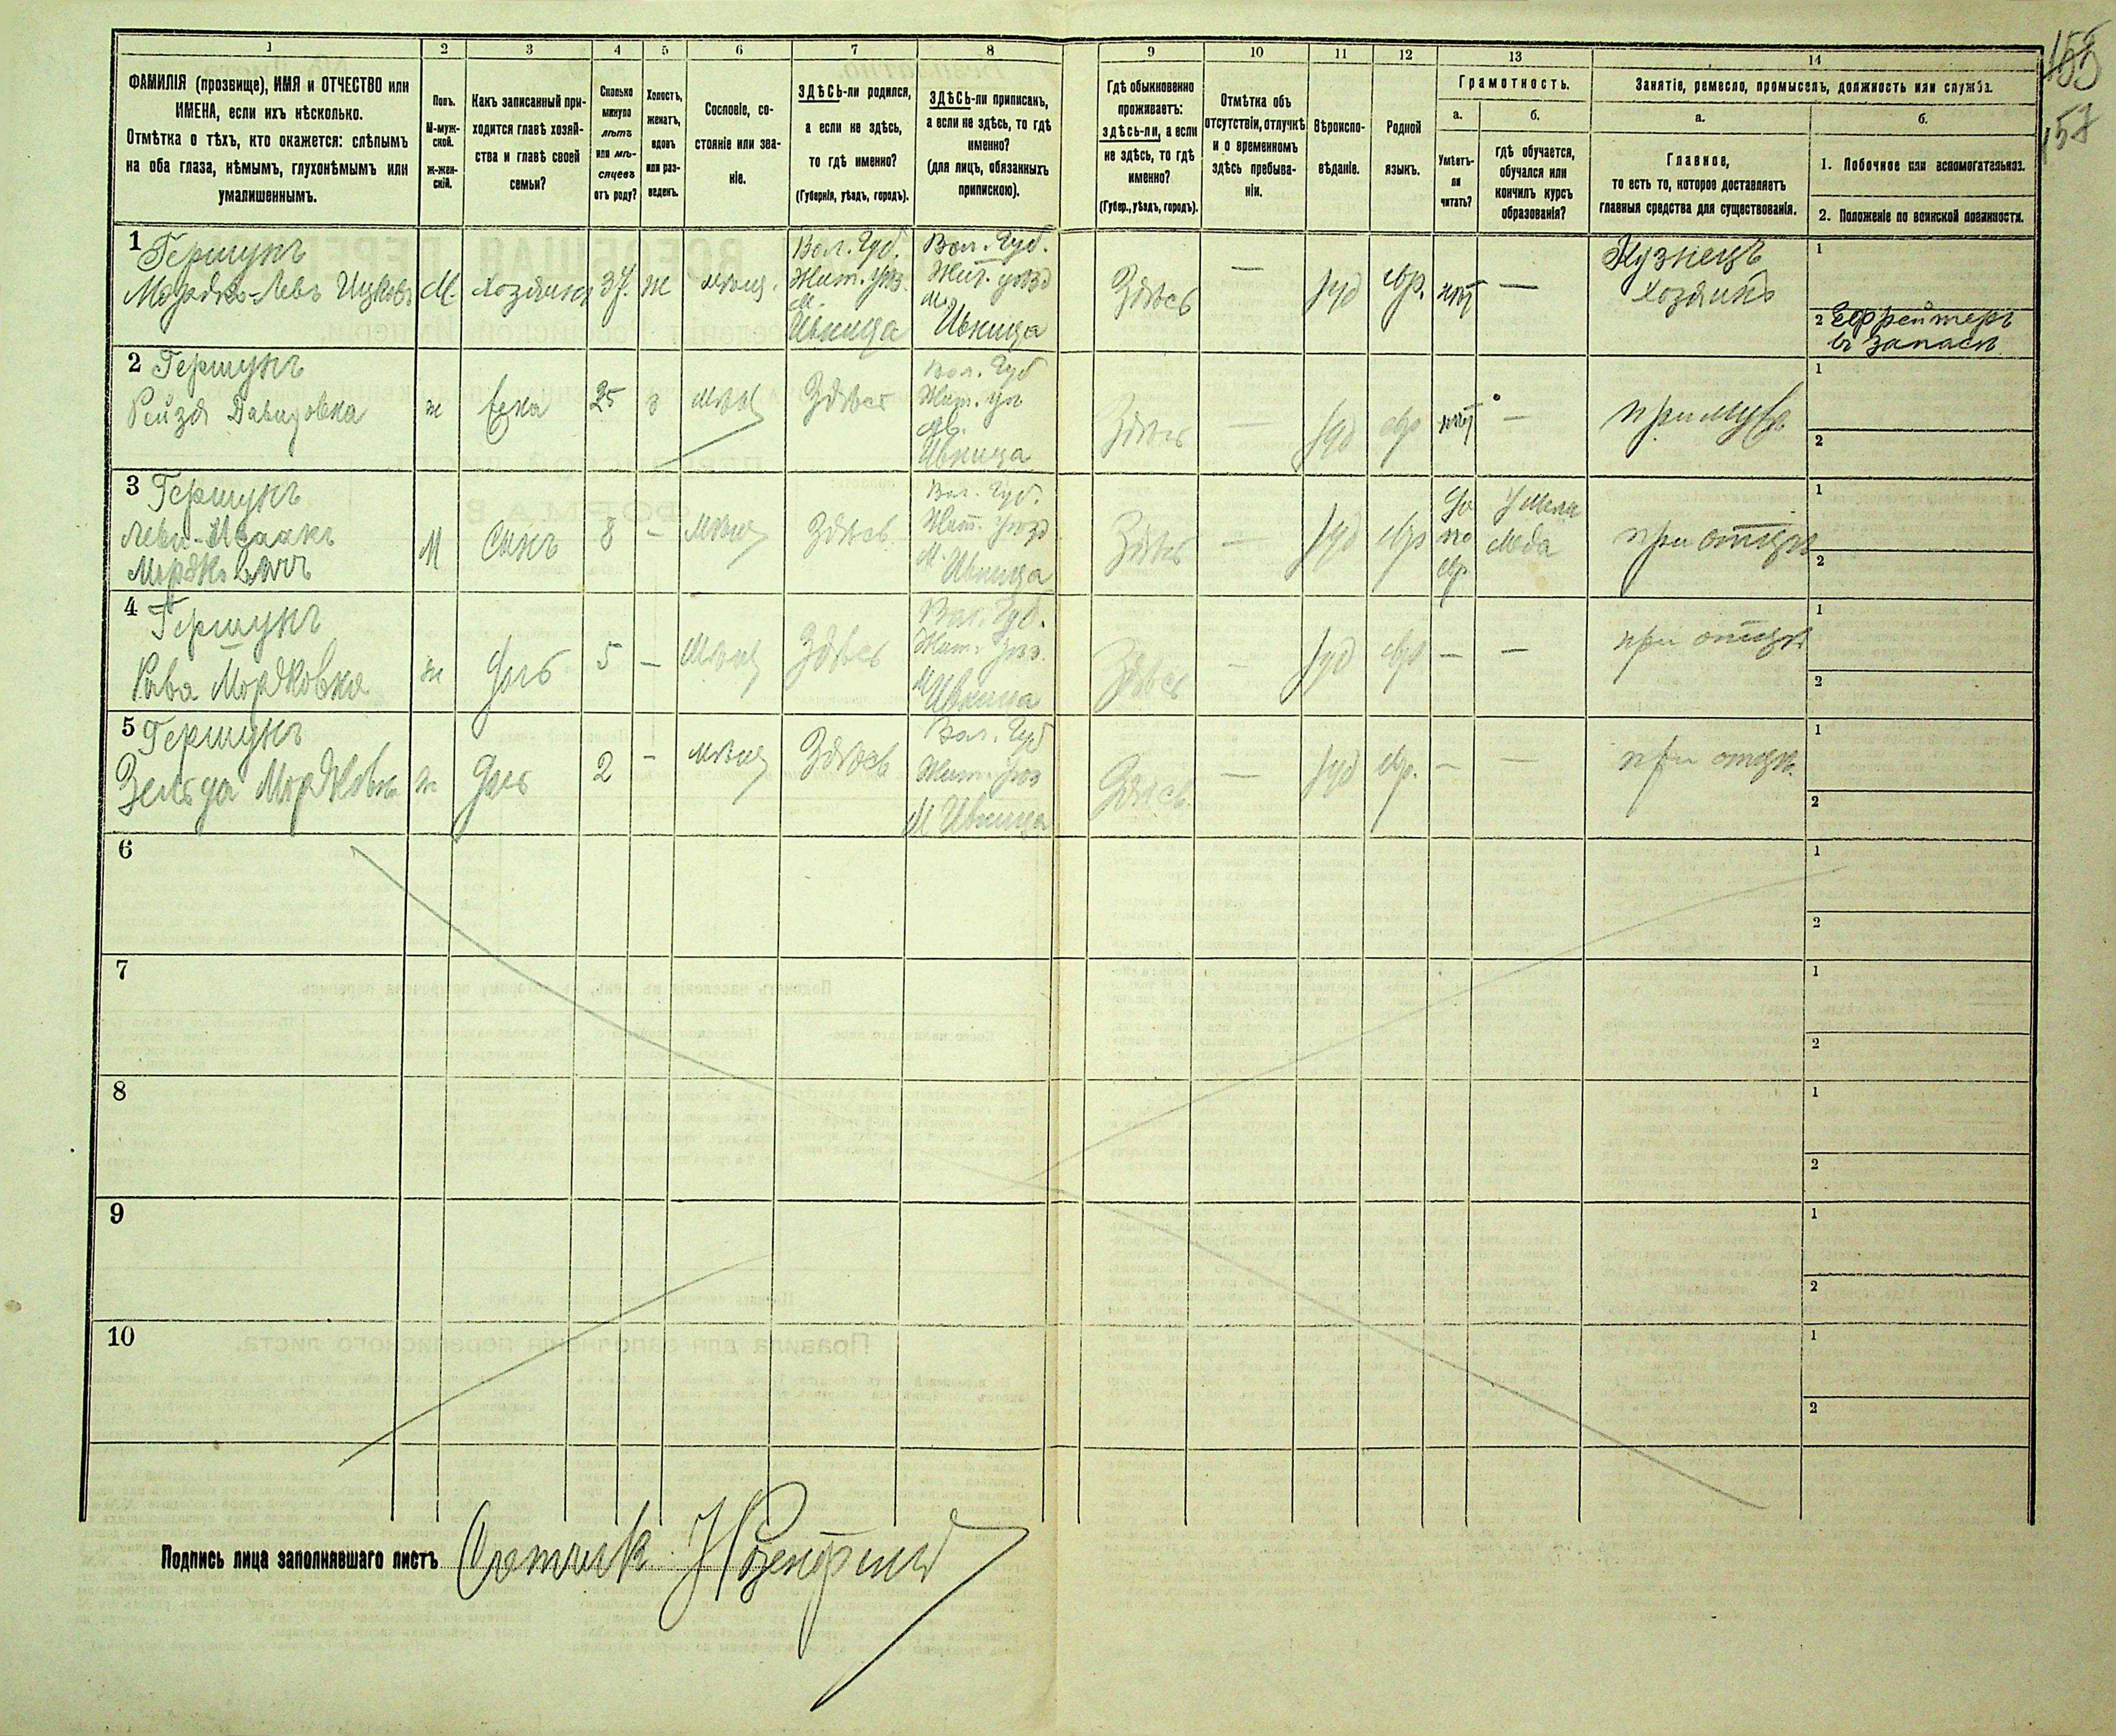 1 2 3 4 5 6 7 8 9 10 11 12 13 14
ФАМИЛІЯ (прозвище), ИМЯ и ОТЧЕСТВО или
ИМЕНА, если ихъ нѣсколько.
Отмѣтка о тѣхъ, кто окажется: слѣпымъ
на оба глаза, нѣмымъ, глухонѣмымъ или
умалишеннымъ.
Полъ.
М-муж-
ской.
Ж-жен-
скій.
Какъ записанный при-
ходится главѣ хозяй-
ства и главѣ своей
семьи?
Сколько
минуло
лѣтъ
или мѣ-
сяцевъ
отъ роду?
Холостъ,
женатъ,
вдовъ
или раз-
веденъ.
Сословіе, со-
стояніе или зва-
ніе.
ЗДѢСЬ-ли родился,
а если не здѣсь,
то гдѣ именно?
(Губернія, уѣздъ, городъ).
ЗДѢСЬ-ли приписанъ,
а если не здѣсь, то гдѣ
именно?
(для лицъ, обязанныхъ
припискою).
Гдѣ обыкновенно
проживаетъ:
здѣсь-ли, а если
не здѣсь, то гдѣ
именно?
(Губер., уѣздъ, городъ).
Отмѣтка объ
отсутствіи, отлучкѣ
и о временномъ
здѣсь пребыва-
ніи.
Вѣроиспо-
вѣданіе.
Родной
языкъ.
Грамотность.
а.
Умѣетъ-
ли
читать?
б.
гдѣ обучается,
обучался или
кончилъ курсъ
образованія?
Занятіе, ремесло, промыселъ, должность или служба.
а.
Главное,
то есть то, которое доставляетъ
главныя средства для существованія.
б.
1. Побочное или вспомогательное.
2. Положеніе по воинской повинности.
157
1 Гершунъ
Мордко-Левъ Ицковъ
М.
хозяинъ
37
ж
мѣщ.
Вол. Губ.
Жит. уѣз.
м.
Ивница
Вол. Губ.
Жит. уѣзд
м.
Ивница
Здѣсь
—
іуд
евр.
нѣт
—
Кузнецъ
хозяинъ
1
2 Ефрейторъ
въ запасѣ
2 Гершунъ
Рейзя Давидовна
ж
жена
25
з
мѣщ
Здѣсь
Вол. Губ
Жит. уѣз
м.
Ивница
Здѣсь
—
іуд
евр
нѣт
—
при мужѣ
1
2
3 Гершунъ
Леви-Исаакъ
Мордковичъ
М
Сынъ
8
—
мѣщ
Здѣсь
Вол. Губ.
Жит. уѣзд
м. Ивница
Здѣсь
—
іуд
евр
да
по
евр.
У мела
меда
при отцѣ
1
2
4 Гершунъ
Хава Мордковна
ж
Дочь
5
—
мѣщ
Здѣсь
Вол. Губ.
Жит. уѣз.
м Ивница
Здѣсь
—
іуд
евр
—
—
при отцѣ
1
2
5 Гершунъ
Зельда Мордковна
ж
Дочь
2
—
мѣщ
Здѣсь
Вол. Губ
Жит. уѣз
м Ивница
Здѣсь
—
іуд
евр.
—
—
при отцѣ
1
2
6
1
2
7
1
2
8
1
2
9
1
2
10
1
2
Подпись лица заполнявшаго листъ Счетчикъ